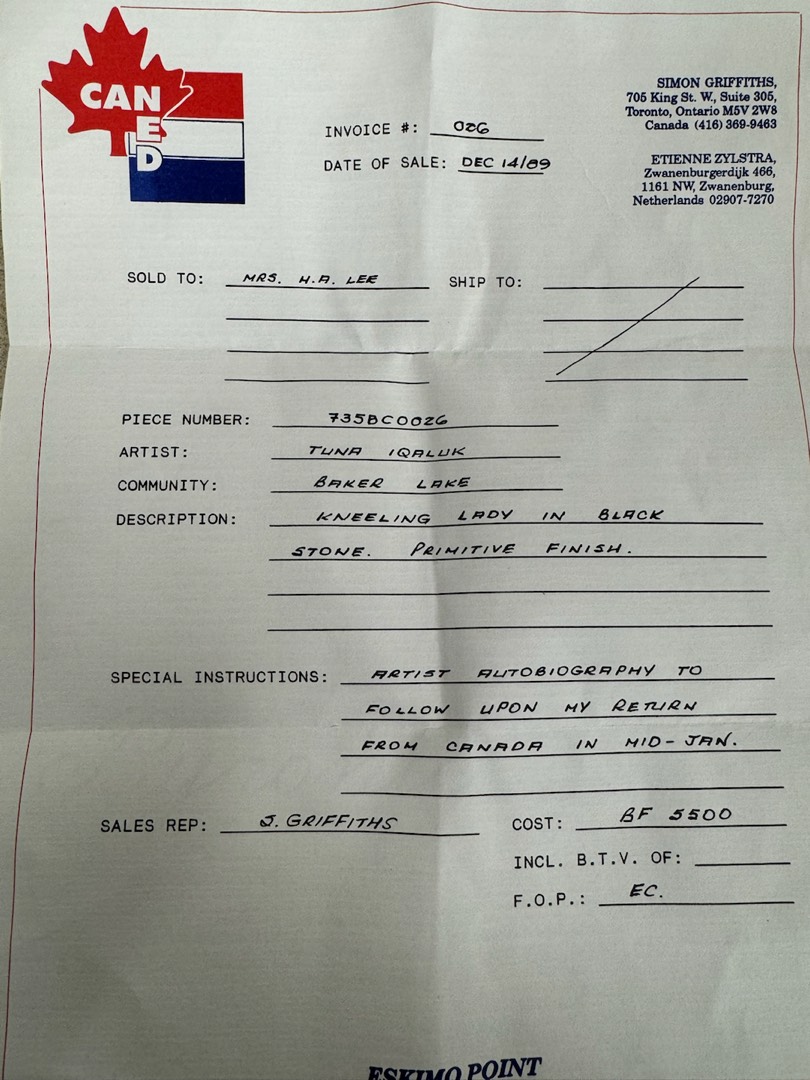 CAN
NED
SIMON GRIFFITHS,
705 King St. W., Suite 305,
Toronto, Ontario M5V 2W8
Canada (416) 369-9463
ETIENNE ZYLSTRA,
Zwanenburgerdijk 466,
1161 NW, Zwanenburg,
Netherlands 02907-7270
INVOICE #: 026
DATE OF SALE: DEC 14/89
SOLD TO: MRS. H.A. LEE
SHIP TO:
PIECE NUMBER: 735BC0026
ARTIST: TUNA IQALUK
COMMUNITY: BAKER LAKE
DESCRIPTION: KNEELING LADY IN BLACK
STONE. PRIMITIVE FINISH.
SPECIAL INSTRUCTIONS: ARTIST AUTOBIOGRAPHY TO
FOLLOW UPON MY RETURN
FROM CANADA IN MID-JAN.
SALES REP: S. GRIFFITHS
COST: BF 5500
INCL. B.T.V. OF:
F.O.P.: EC.
ESKIMO POINT